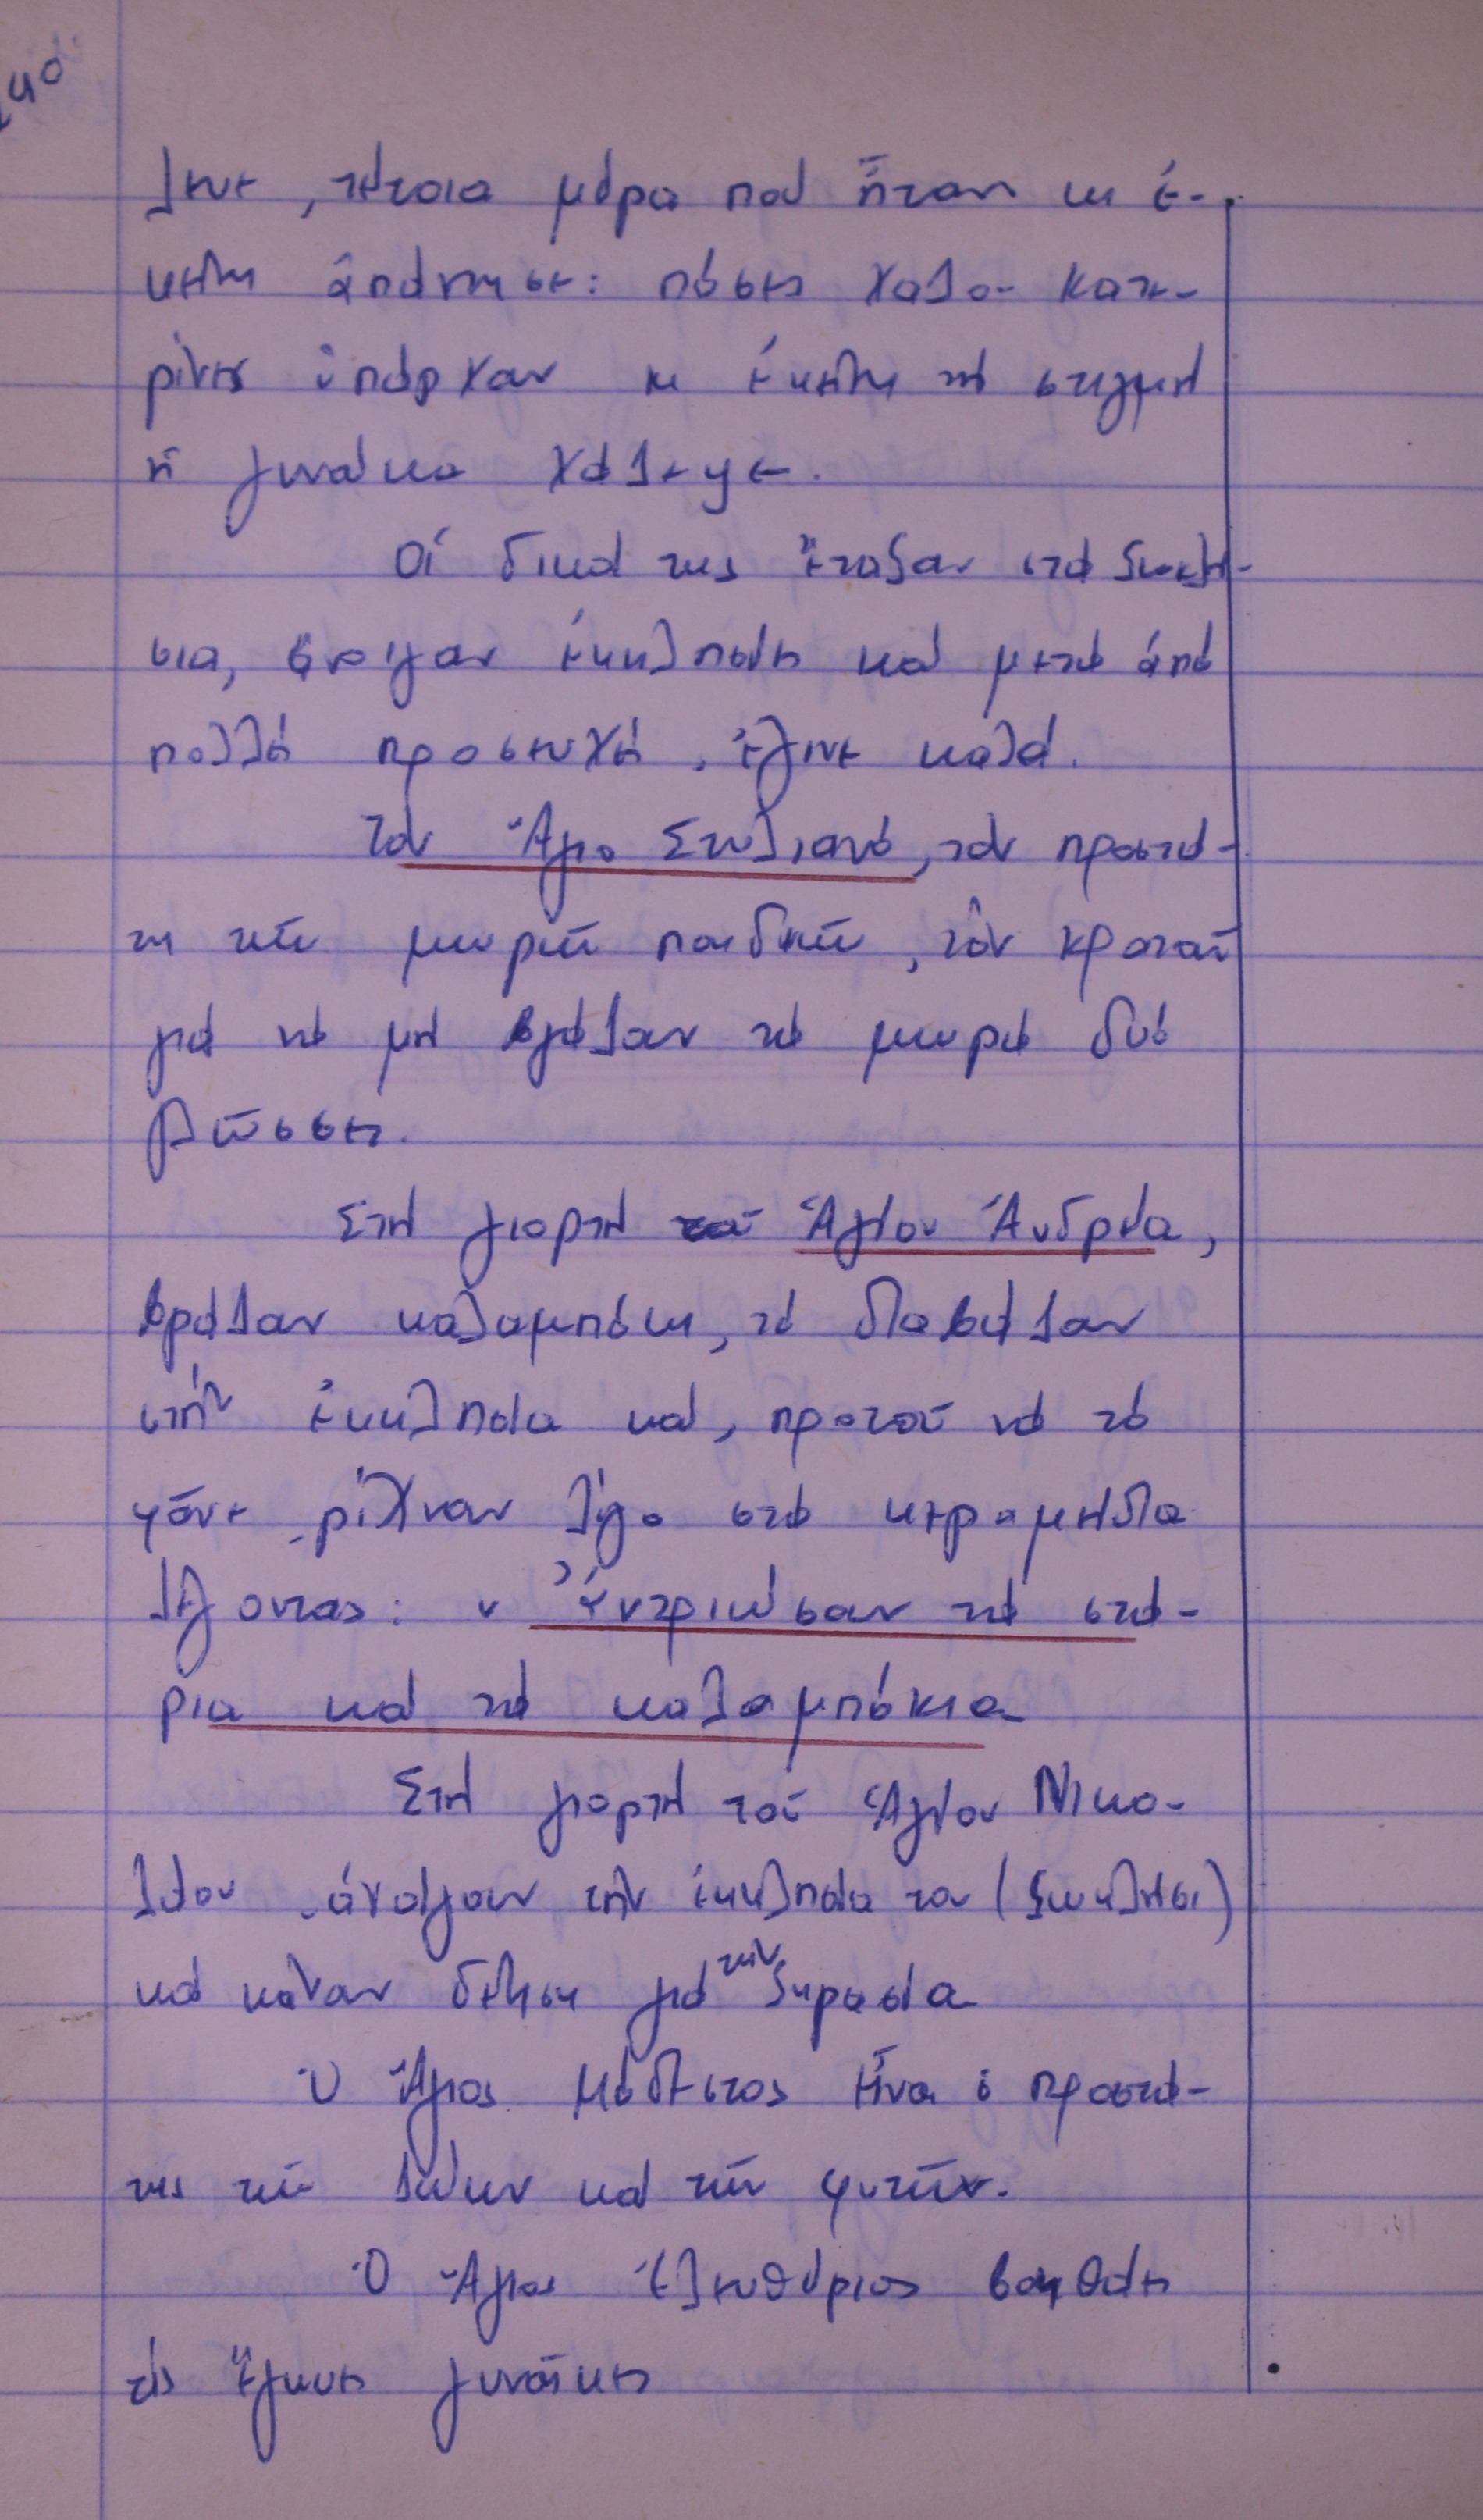 240
λενε, τέτοια μέρα πού ἦταν κι ἐ-
κείνη ἀπάντησε: πόσες χαλο- Κατε-
ρίνες ὑπάρχαν κι ἐκείνη τή στιγμή
ἡ γυναίκα χάλεψε.
Οἱ δικοί της ἔταξαν στά ξωκλή-
σια, ἄνοιγαν ἐκκλησίες καί μετά ἀπό
πολλή προσευχή, ἔγινε καλά.
Τόν Ἅγιο Στυλιανό, τόν προστά-
τη τῶν μικρῶν παιδιῶν, τόν κρατοῦν
γιά νά μή βγάζουν τά μικρά δυό
γλῶσσες.
Στή γιορτή τοῦ Ἁγίου Ἀνδρέα,
βράζαν καλαμπόκι, τό διαβάζαν
στήν ἐκκλησία καί, προτοῦ νά τό
φᾶνε, ρίχναν λίγο στά κεραμήδια
λέγοντας: " Ἀντρειώσαν τά στά-
ρια καί τά καλαμπόκια
Στή γιορτή τοῦ Ἁγίου Νικο-
λάου ἀνοίγουν τήν ἐκκλησία του (ξωκλήσι)
καί κάναν δέηση γιά τήν ξηρασία
Ὁ Ἅγιος Μόδεστος εἶναι ὁ προστά-
της τῶν ζώων καί τῶν φυτῶν.
Ὁ Ἅγιος Ἐλευθέριος βοηθάει
τίς ἔγκυες γυναῖκες